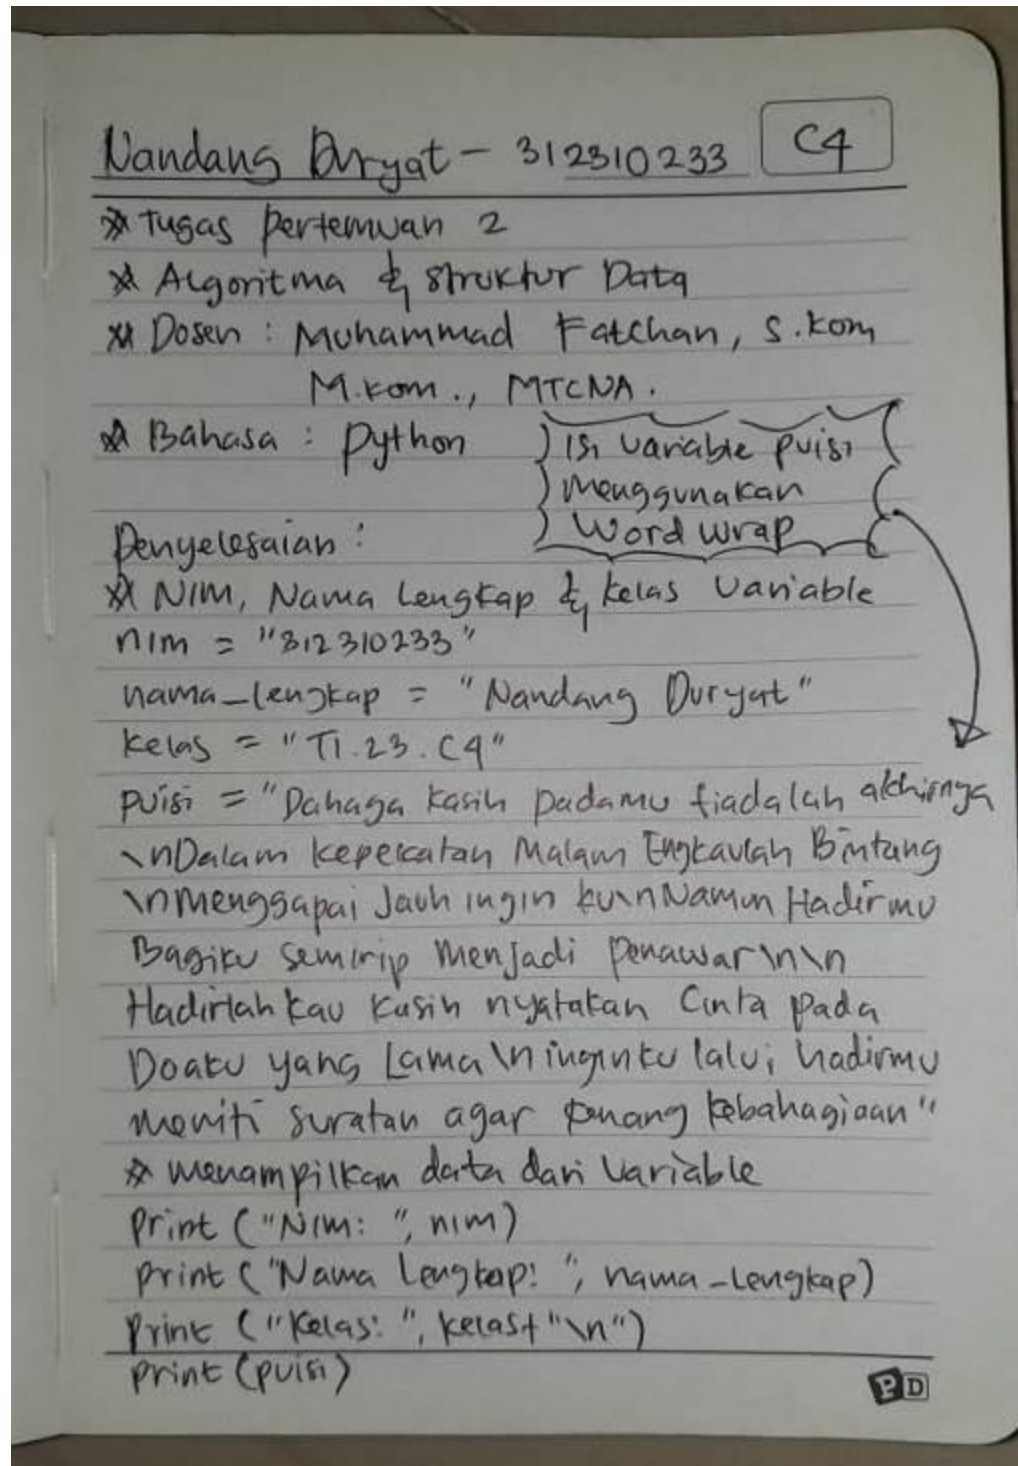 Nandang Duryat - 312310233 C4
* Tugas Pertemuan 2
* Algoritma & Struktur Data
* Dosen : Muhammad Fatchan, S.Kom
M.Kom., MTCNA.
* Bahasa : Python
Isi variable puisi
menggunakan
Word wrap
Penyelesaian :
* NIM, Nama Lengkap & Kelas Variable
nim = "312310233"
nama_lengkap = "Nandang Duryat"
kelas = "TI.23.C4"
puisi = "Dahaga Kasih padamu tiadalah akhirnya
\nDalam kepekatan Malam Engkaulah Bintang
\nMenggapai Jauh ingin ku\nNamun Hadirmu
Bagiku semirip Menjadi Penawar\n\n
Hadirlah kau kasih nyatakan Cinta pada
Doaku yang Lama\ninginku lalui hadirmu
meniti suratan agar tenang kebahagiaan"
* menampilkan data dari variable
print ("NIM: ", nim)
print ("Nama Lengkap: ", nama_lengkap)
print ("Kelas: ", kelas+"\n")
print (puisi)
PD